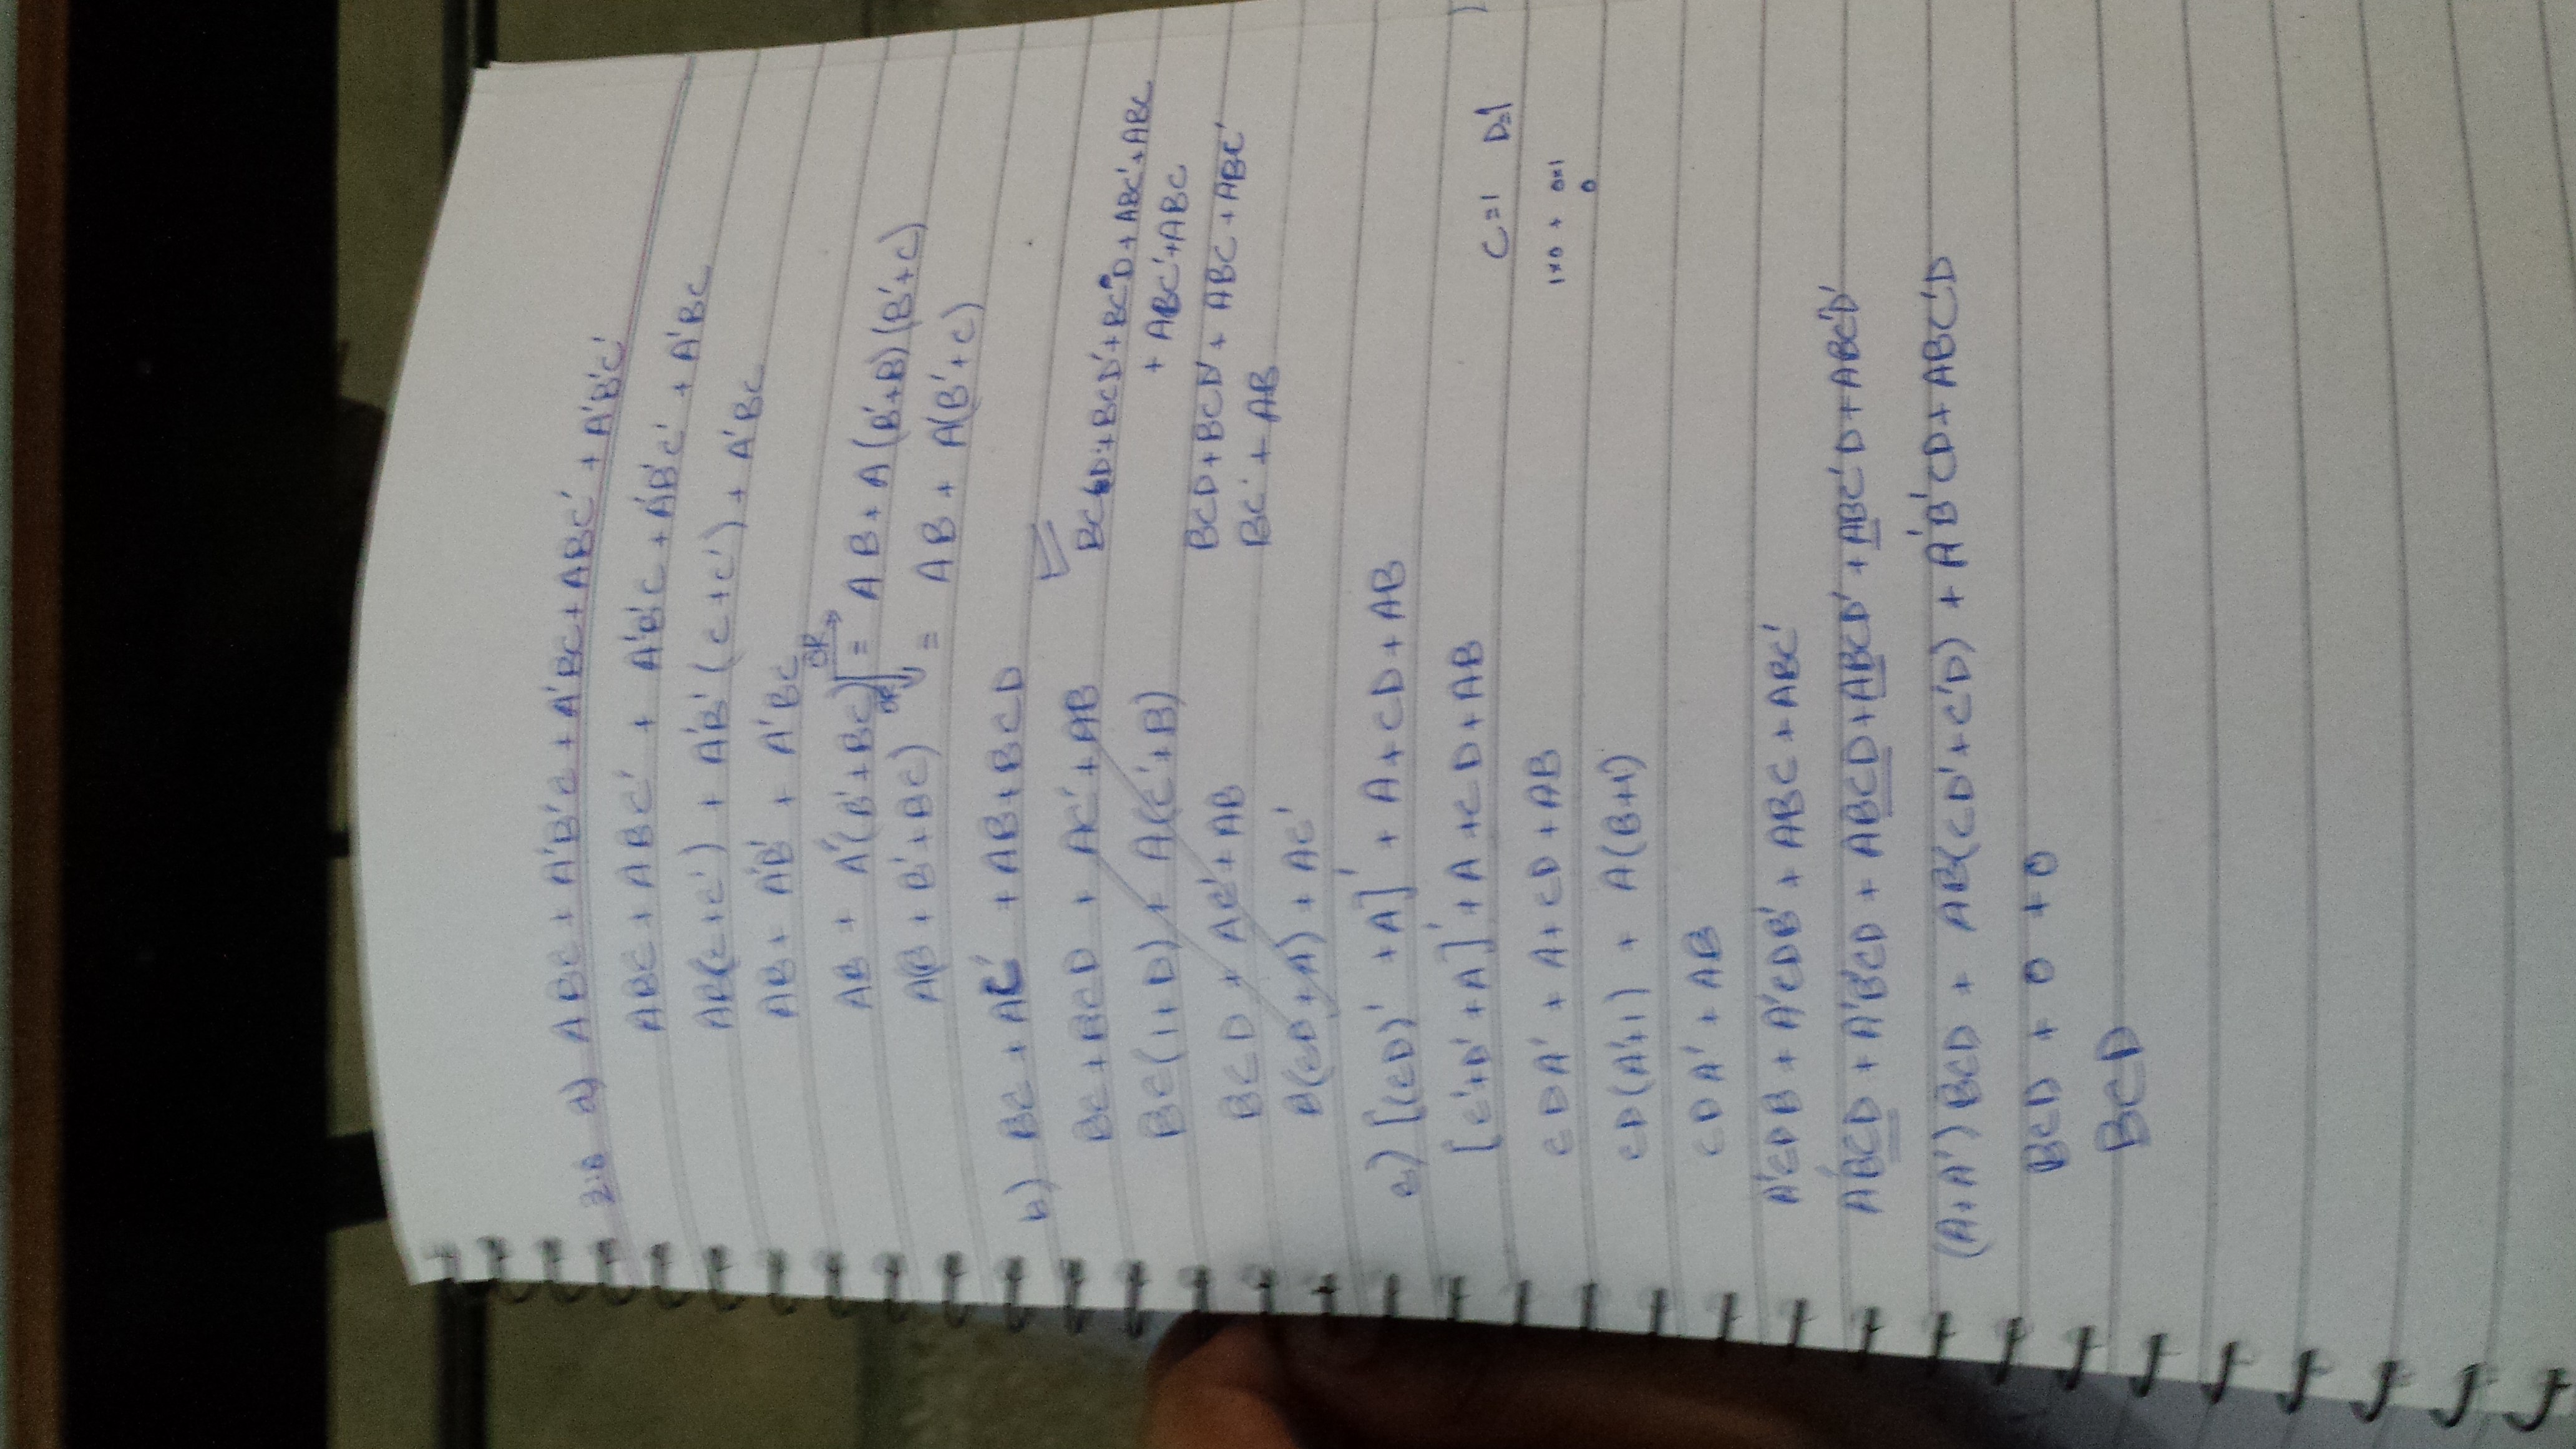 a) ABC + A'B'C + A'BC + ABC' + A'B'C'
ABC + ABC' + A'B'C + A'B'C' + A'BC
AB(C+C') + A'B'(C+C') + A'BC
AB + A'B' + A'BC
OR
AB + A'(B'+BC) = AB + A(B'+B)(B'+C)
OR
A(B + B' + BC) = AB + A(B'+C)
b) BC + AC' + AB + BCD
BC + BCD + AC' + AB
BC(1+D) + A(C'+B)
BCD + AC' + AB
B(CD+A) + AC'
BCD + BCD' + BCD + ABC' + ABC
+ ABC' + ABC
BCD + BCD' + ABC + ABC'
BC + AB
c) [(CD)' + A]' + A + CD + AB
[C'+D'+A]' + A + CD + AB
C=1 D=1
CDA' + A + CD + AB
1×0 + 0×1
0
CD(A'+1) + A(B+1)
CDA' + AB
A'CDB + A'CDB' + ABC + ABC'
A'BCD + A'B'CD + ABCD + ABCD' + ABC'D + ABC'D'
(A+A')BCD + AB(CD'+C'D) + A'B'CD + ABC'D
BCD + 0 + 0
BCD